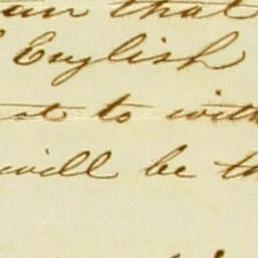 that
English
to with
will be